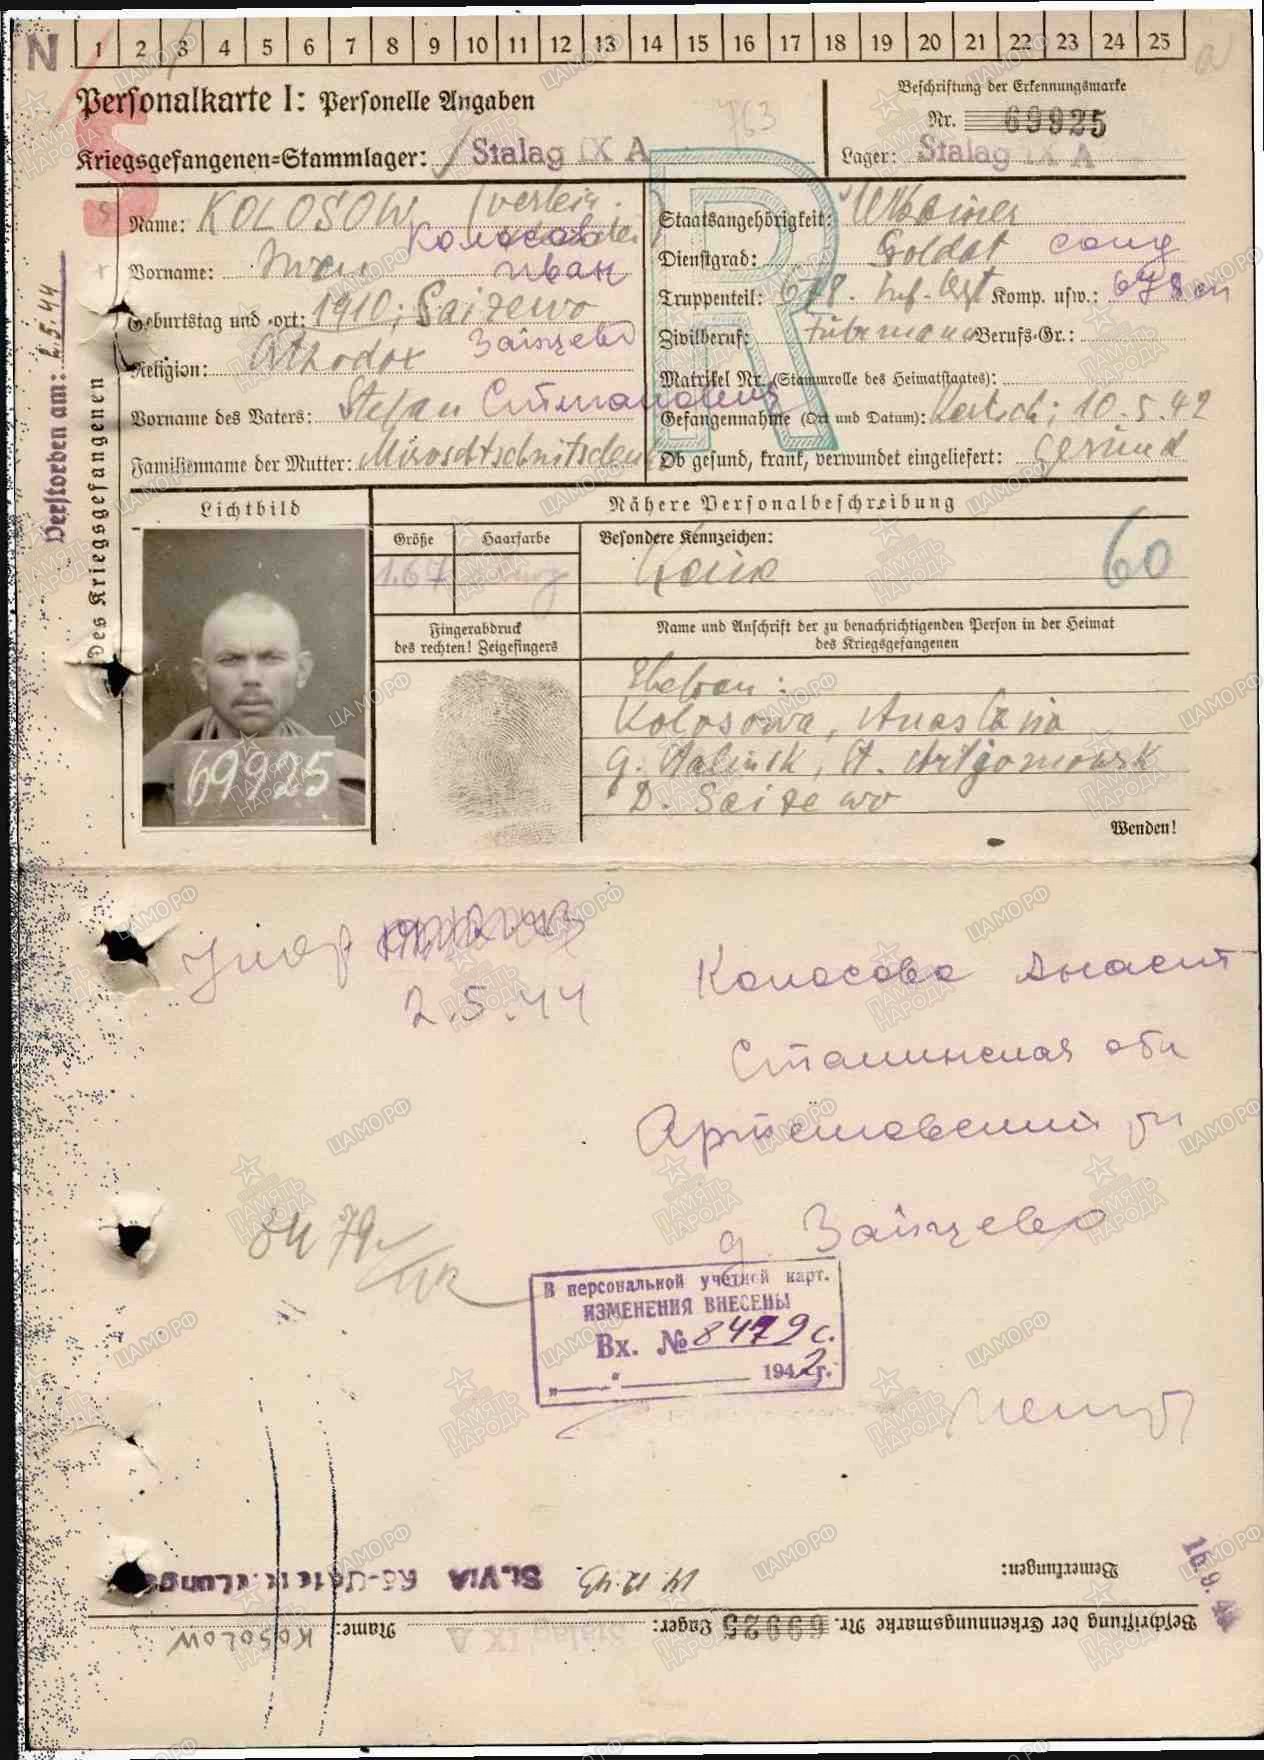 N 1 2 3 4 5 6 7 8 9 10 11 12 13 14 15 16 17 18 19 20 21 22 23 24 25
Personalkarte I: Personelle Angaben
763
Beschriftung der Erkennungsmarke
Nr. 69925
Kriegsgefangenen=Stammlager: Stalag IX A
Lager: Stalag IX A
S
R
Name: KOLOSOW
Колосов
Vorname: Iwan Иван
Geburtstag und =ort: 1910; Saizewo
Religion: Orthodox Зайцево
Vorname des Vaters: Stefan Степанович
Familienname der Mutter:
Staatsangehörigkeit: Ukrainer
Dienstgrad: Soldat солд
Truppenteil: 678. Inf.-Rgt Komp. usw.: 678 сп
Zivilberuf: Fuhrmann Berufs=Gr.:
Matrikel Nr. (Stammrolle des Heimatstaates):
Gefangennahme (Ort und Datum): Kertsch; 10.5.42
Ob gesund, krank, verwundet eingeliefert: Gesund
Verstorben am: 2.5.44
Des Kriegsgefangenen
Lichtbild
Nähere Personalbeschreibung
Größe
Haarfarbe
Besondere Kennzeichen:
1.67
Keine
60
Fingerabdruck
des rechten! Zeigefingers
Name und Anschrift der zu benachrichtigenden Person in der Heimat
des Kriegsgefangenen
69925
Ehefrau:
Kolosowa, Anastasia
g. Stalinsk, St. Artjomowsk
D. Saizewo
Wenden!
Умер
2.5.44
Колосова Анаст
Сталинская обл
Артёмовский рн
д. Зайцево
В персональной учетной карт.
ИЗМЕНЕНИЯ ВНЕСЕНЫ
Вх. № 8479с.
„___“ 1942г.
Bemerkungen:
14.12.43. St. VI A
Beschriftung der Erkennungsmarke Nr. 69925 Lager: Stalag IX A Name: KOSOLOW